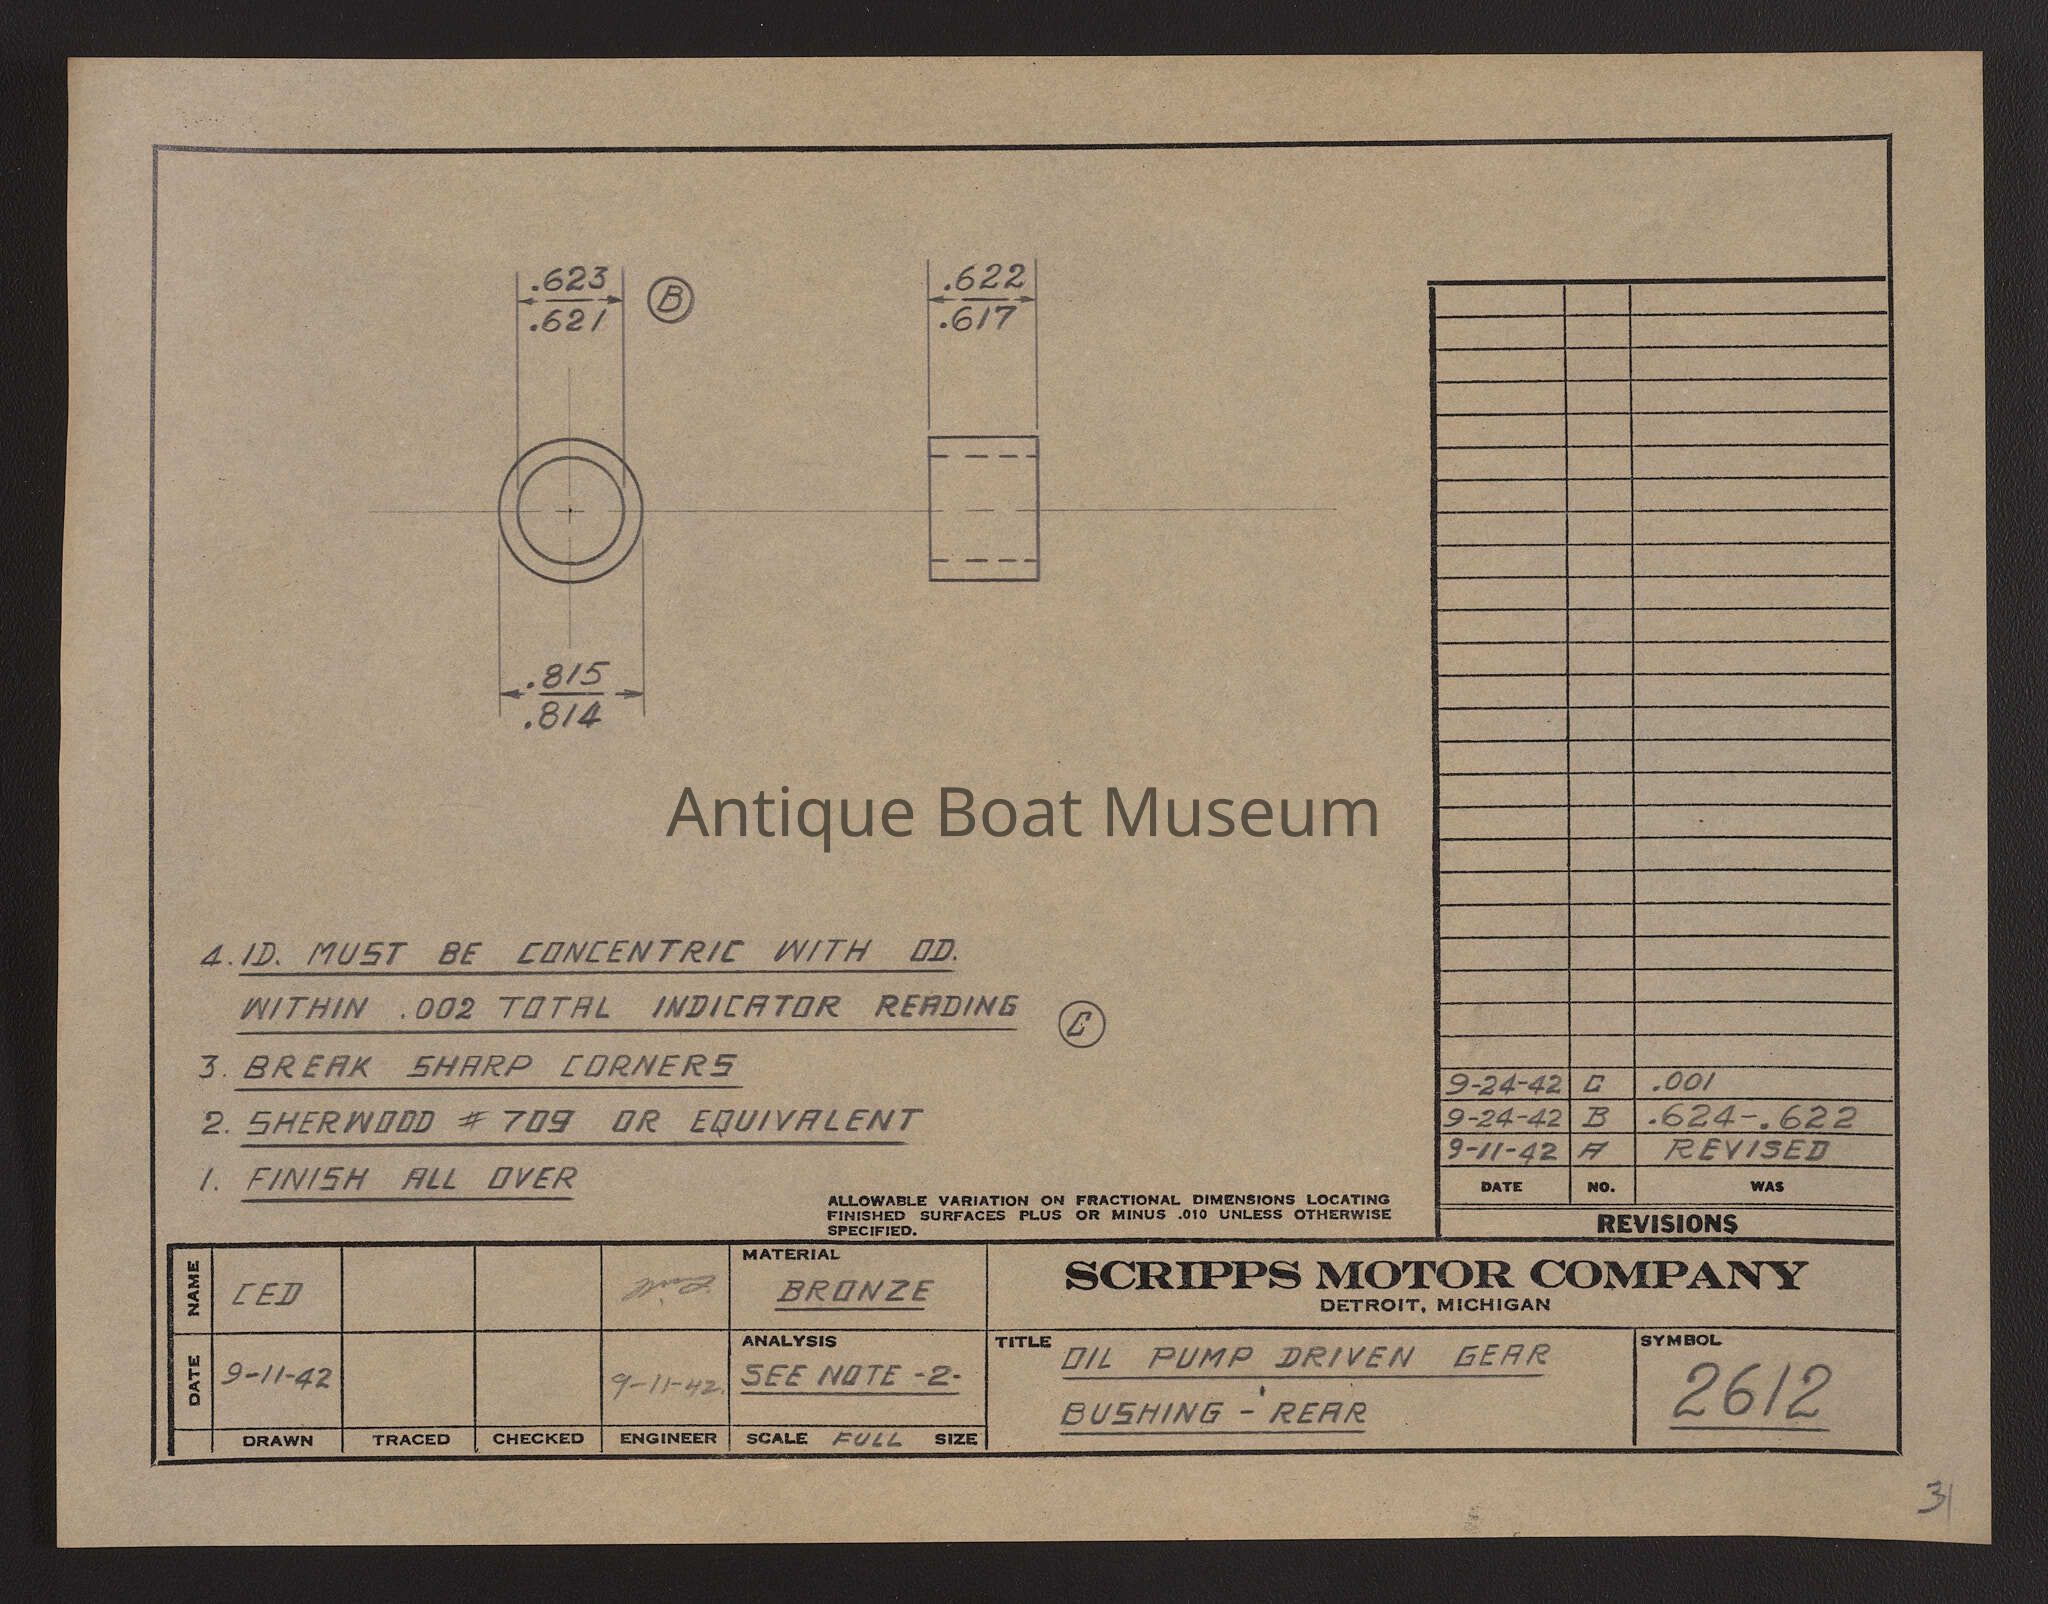 .623
.621
B
.622
.617
.815
.814
Antique Boat Museum
4. ID. MUST BE CONCENTRIC WITH OD.
WITHIN .002 TOTAL INDICATOR READING
C
3. BREAK SHARP CORNERS
2. SHERWOOD # 709 OR EQUIVALENT
1. FINISH ALL OVER
ALLOWABLE VARIATION ON FRACTIONAL DIMENSIONS LOCATING
FINISHED SURFACES PLUS OR MINUS .010 UNLESS OTHERWISE
SPECIFIED.
9-24-42 C .001
9-24-42 B .624-.622
9-11-42 A REVISED
DATE NO. WAS
REVISIONS
NAME CED
DATE 9-11-42 9-11-42.
DRAWN TRACED CHECKED ENGINEER
MATERIAL
BRONZE
ANALYSIS
SEE NOTE -2-
SCALE FULL SIZE
SCRIPPS MOTOR COMPANY
DETROIT, MICHIGAN
TITLE OIL PUMP DRIVEN GEAR
BUSHING - REAR
SYMBOL
2612
31